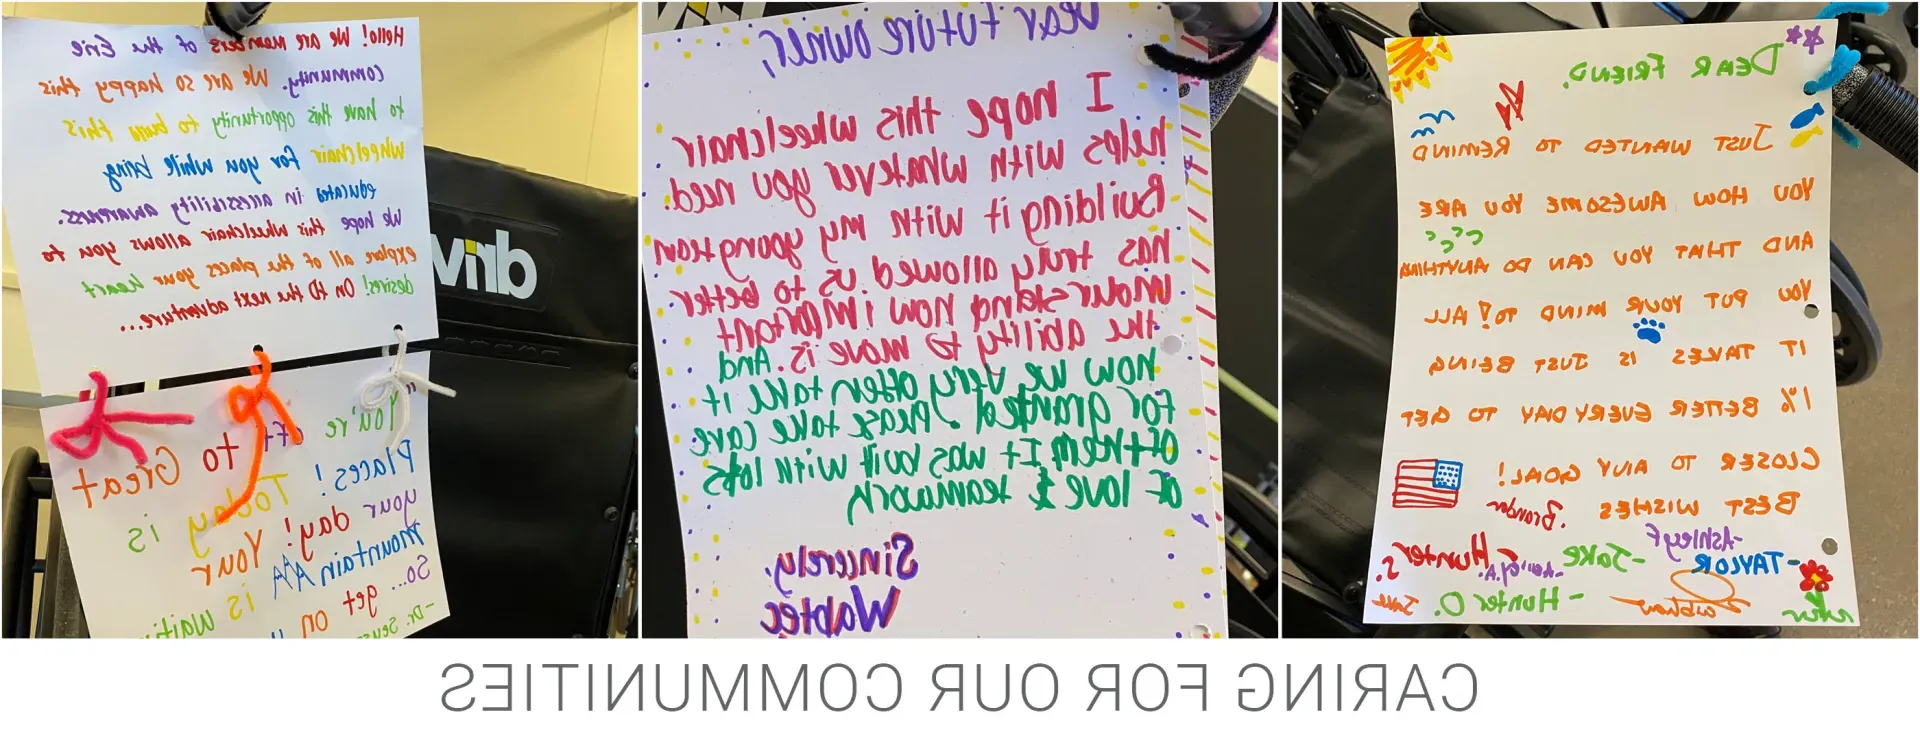 DEAR FRIEND,
JUST WANTED TO REMIND
YOU HOW AWESOME YOU ARE
AND THAT YOU CAN DO ANYTHING
YOU PUT YOUR MIND TO! ALL
IT TAKES IS JUST BEING
1% BETTER EVERY DAY TO GET
CLOSER TO ANY GOAL!
BEST WISHES
Brandon.
-Ashley F
-TAYLOR
-Jake
Hunter S.
-Hunter O.
Jake
Dear Future owner,
I hope this wheelchair
helps with whatever you need.
Building it with my young team
has truly allowed us to better
understand how important
the ability to move is. And
how we very often take it
for granted. Please take care
of them It was built with lots
of love & teamwork
Sincerely,
Wabtec
Hello! We are members of the Erie
Community. We are so happy this
to have this opportunity to build this
wheelchair for you while being
educated in accessibility awareness.
We hope this wheelchair allows you to
explore all of the places your heart
desires! On to the next adventure...
driv
"You're off to Great
Places! Today is
your day! Your
mountain is waiting
So... get on
-Dr. Seuss
CARING FOR OUR COMMUNITIES